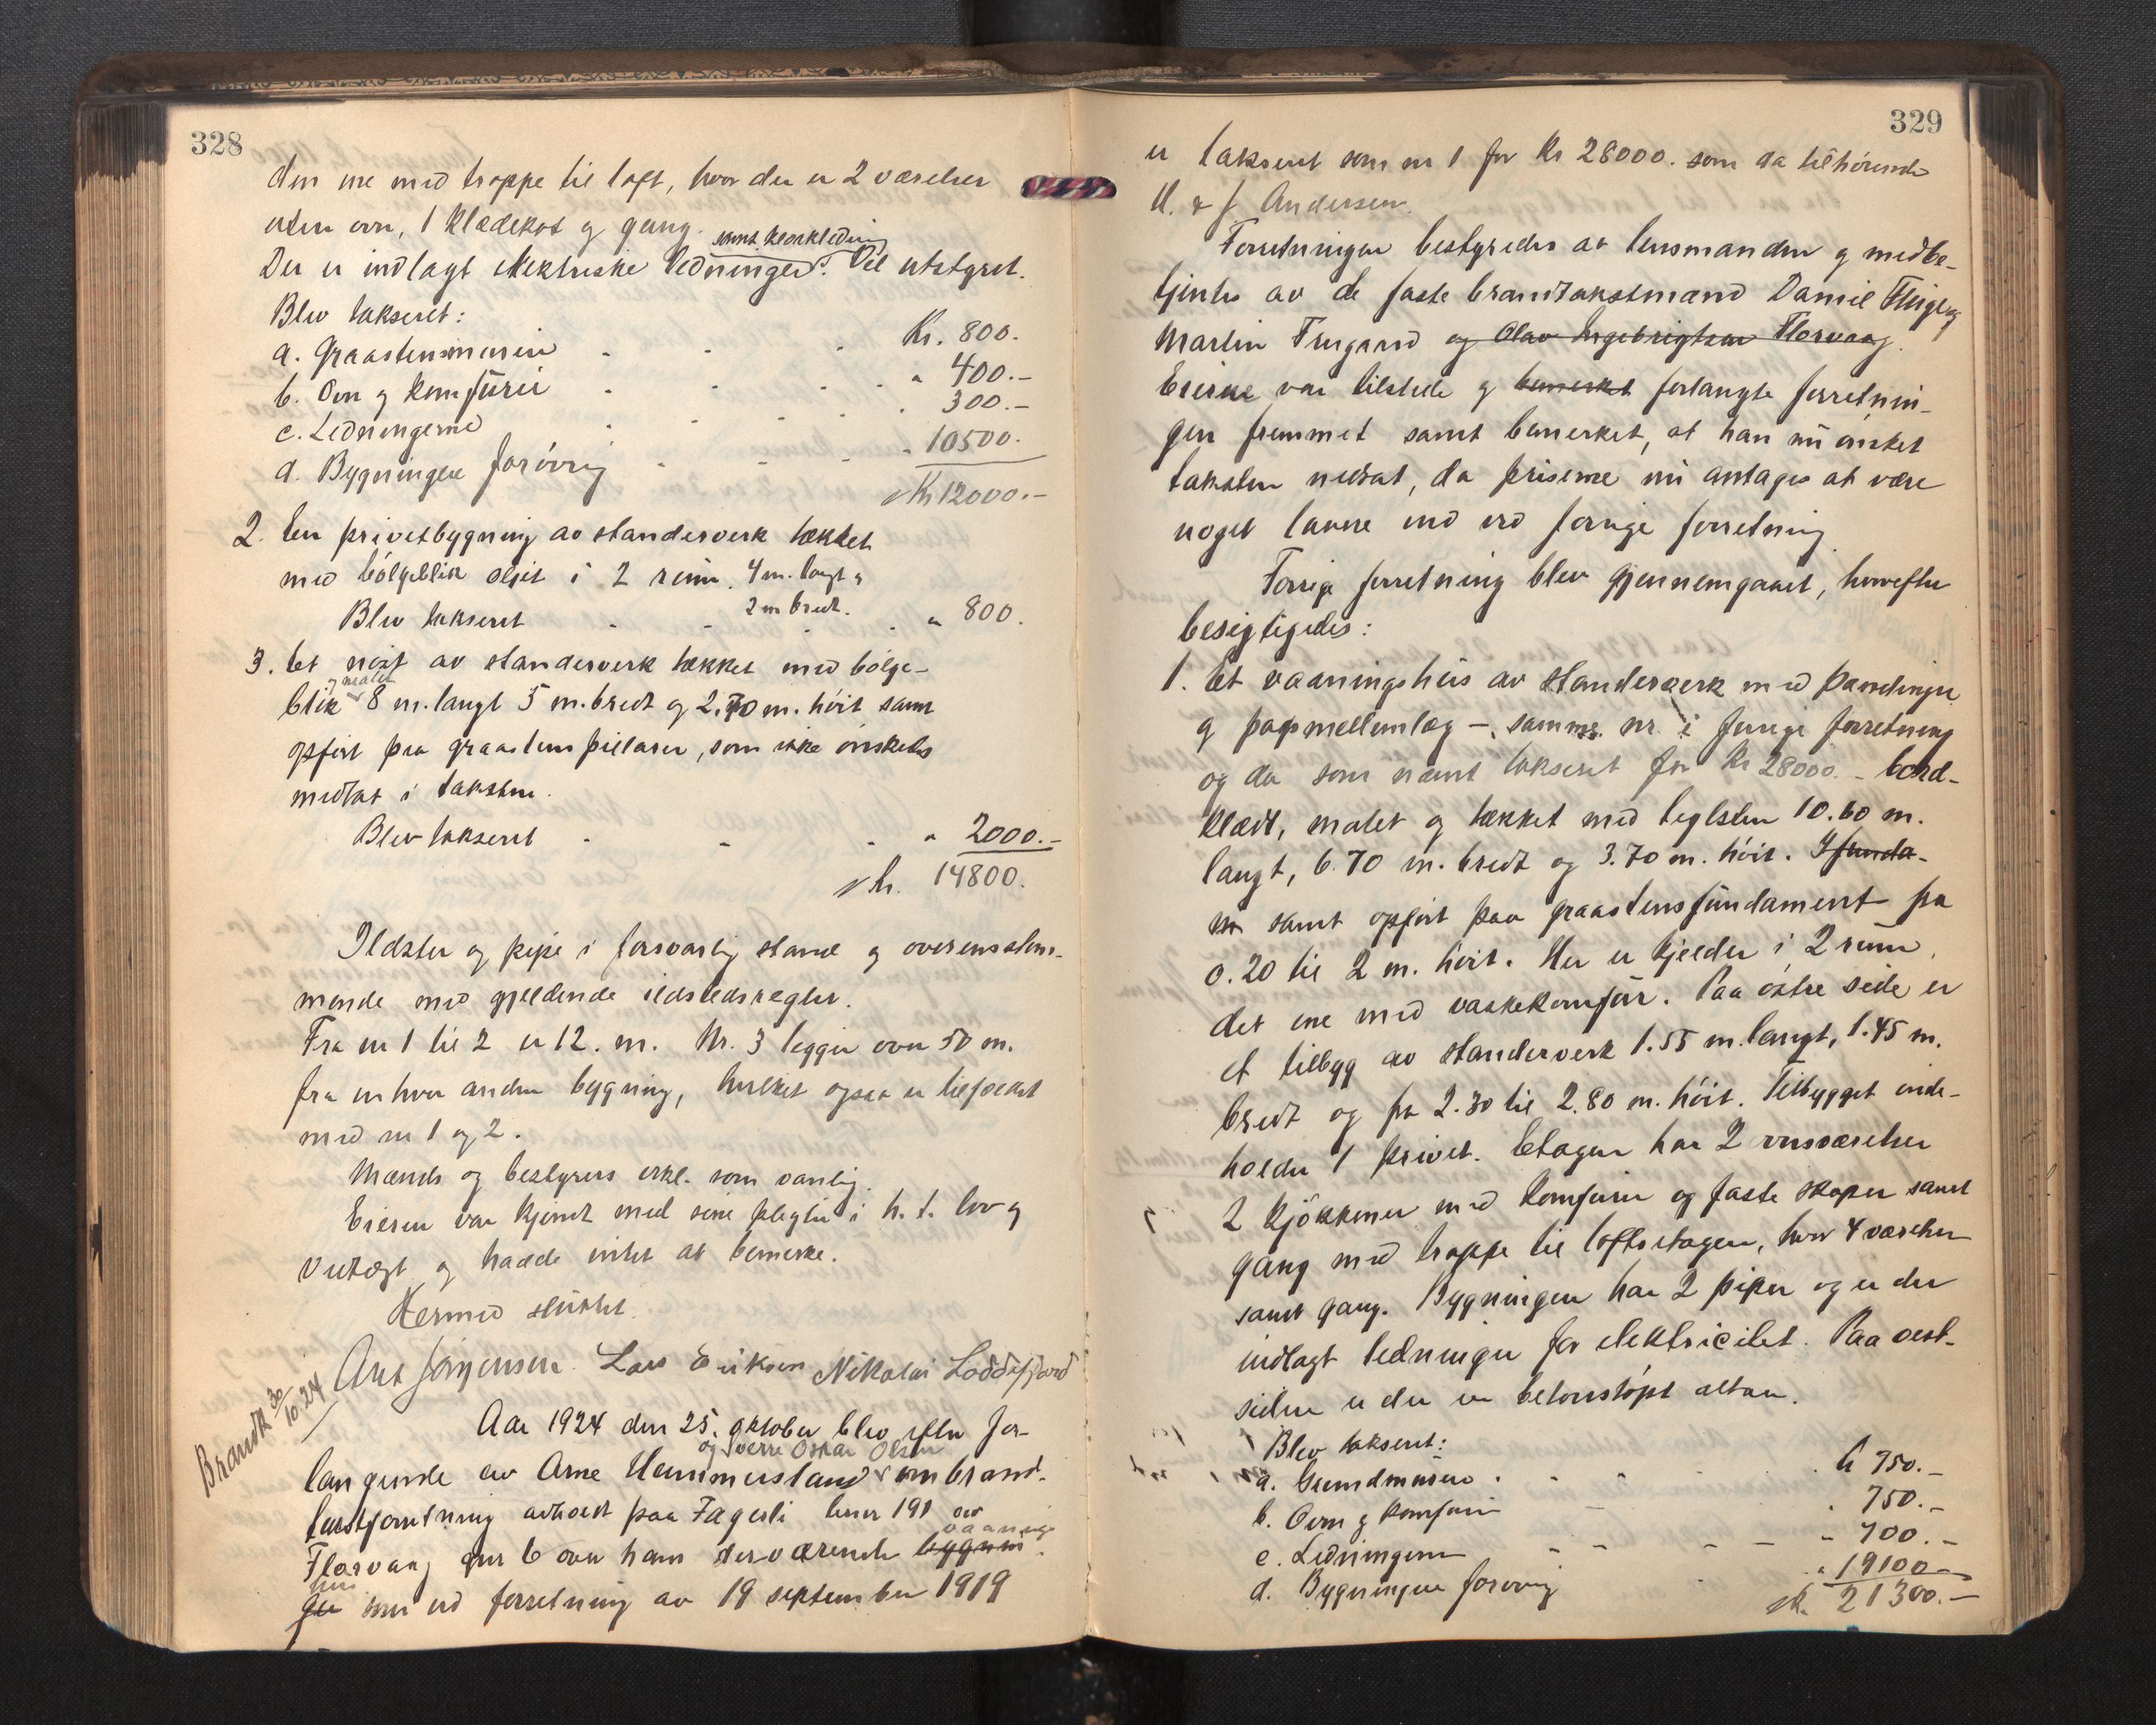 328
den ene med trappe til loft, hvor der er 2 værelser
uten ovn, 1 klædekot og gang.
samt kloakledning
Der er indlagt elektriske ledninger. Vel utstyret.
Blev takseret:
a. Graastensmuren Kr. 800.
b. Ovn og komfürer " 400.-
c. Ledningerne " 300.-
d. Bygningen forøvrig " 10500.
Kr 12000.-
2. En privetbygning av standerverk tækket
med bølgeblik delt i 2 rum. 4 m. langt og
2 m bredt.
Blev takseret " 800.
3. Et nøst av standerverk tækket med bølge-
og malet
blik 8 m. langt 5 m. bredt og 2.70 m. høit samt
opført paa graastens pillarer, som ikke ønskedes
medtat i taksten.
Blev takseret " 2000.-
Kr. 14800.
Ildsted og pipe i forsvarlig stand og overensstem-
mende med gjeldende ildstedsregler.
Fra nr 1 til 2 er 12. m. Nr. 3 ligger over 50 m.
fra enhver anden bygning, hvilket ogsaa er tilfældet
med nr 1 og 2.
Mænds og bestyrers erkl. som vanlig.
Eieren var kjendt med sine pligter i h. t. lov og
vedtægt og hadde intet at bemerke.
Hermed sluttet.
Ant Jørgensen Lars Eriksen Nikolai Loddefjord
Brandk 30/10.24
Aar 1924 den 25. oktober blev efter for-
og Sverre Oskar Olsen
langende av Arne Hammersland om brand-
takstforretning avholdt paa Fagerli bnr 191 av
vaanings
Florvaag gnr 6 over hans derværende bygnin-
hus
ger som ved forretning av 19 september 1919
329
er takseret som nr 1 for Kr 28000. som da tilhørende
A. & J. Andersen.
Forretningen bestyredes av lensmanden og medbe-
tjentes av de faste brandtakstmænd Daniel Ehige og
Martin Fureaard og Olav Ingebrigtsen Florvaag.
Eierne var tilstede og bemerket forlangte forretnin-
gen fremmet samt bemerket, at han nu ønsket
taksten nedsat, da priserne nu antages at være
noget lavere end ved forrige forretning.
Forrige forretning blev gjennemgaaet, hvorefter
besigtigedes:
1. Et vaaningshus av standerverk med pandinger
og papmellemlæg - samme nr. i forrige forretning
og da som nævnt takseret for Kr 28000.- bord-
klædt, malet og tækket med teglsten 10.60 m.
langt, 6.70 m. bredt og 3.70 m. høit. I funda-
m samt opført paa graastensfundament fra
0.20 til 2 m. høit. Her er kjelder i 2 rum,
det ene med vaskekomfur. Paa østre side er
et tilbygg av standerverk 1.55 m. langt, 1.45 m.
bredt og fra 2.30 til 2.80 m. høit. Tilbygget inde-
holder 1 privet. Etagen har 2 ovnsværelser
2 kjøkkener med komfurer og faste skaper samt
gang med trappe til loftsetagen, hvor 4 værelser
samt gang. Bygningen har 2 piper og er der
indlagt ledninger for elektricitet. Paa vest-
siden er der en betonstøpt altan.
Blev takseret:
a. Grundmuren Kr 750.-
b. Ovn og komfurer " 750.-
c. Ledningerne " 700.-
d. Bygningen forøvrig " 19100-
Kr. 21300.-